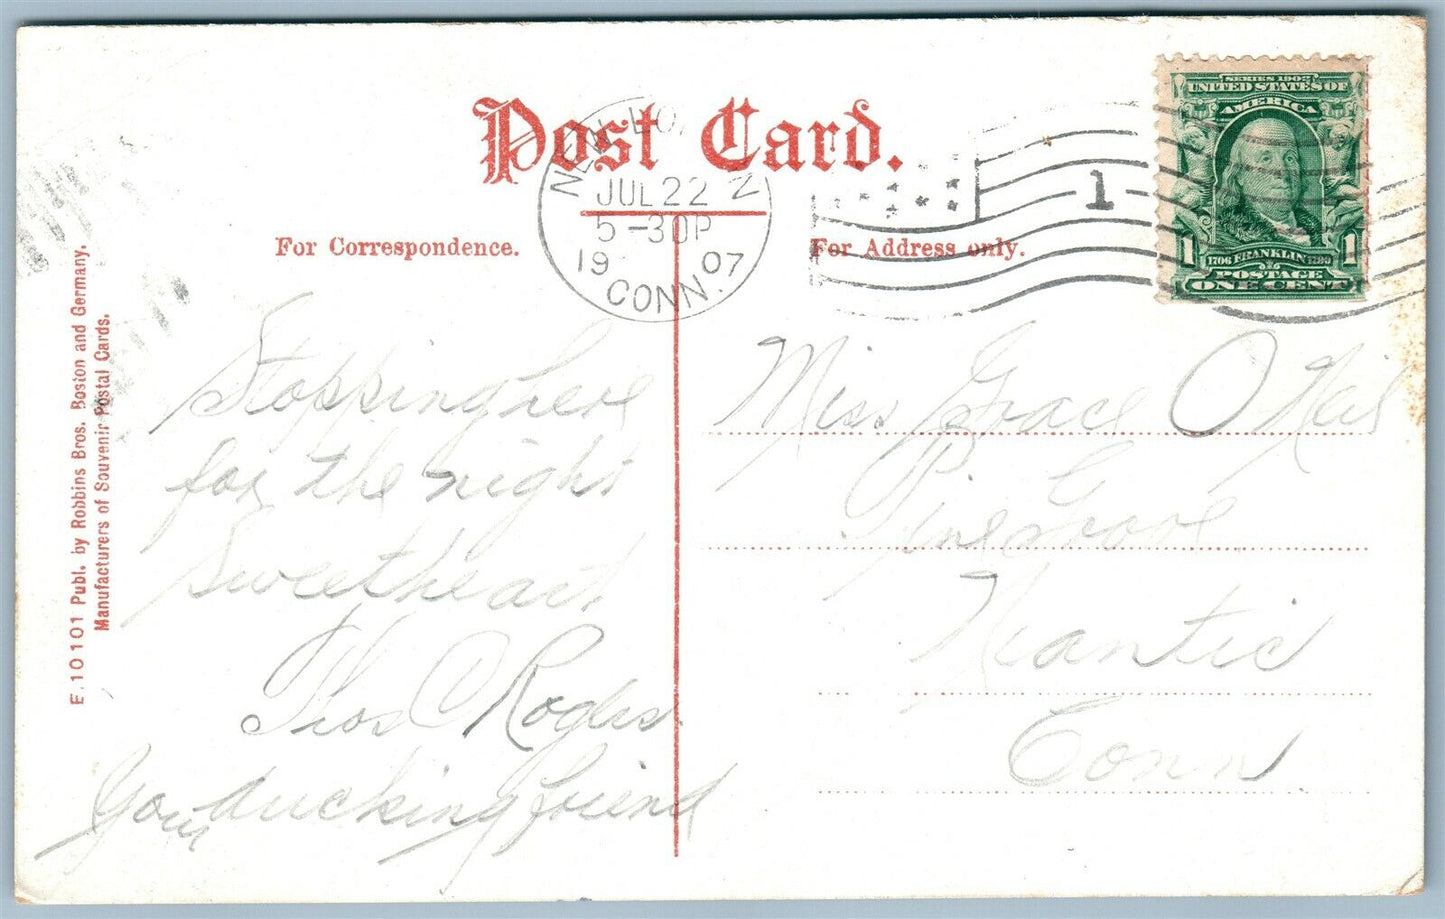 Post Card.
NEW LON
JUL 22
5-30P
19 07
CONN.
1
SERIES 1902
UNITED STATES OF
AMERICA
1 1
1706 FRANKLIN 1790
POSTAGE
ONE CENT
For Correspondence.
For Address only.
E. 10101 Publ. by Robbins Bros. Boston and Germany.
Manufacturers of Souvenir Postal Cards.
Stopping here
for the night
Sweetheart
Thos C Rogers
Your ducking friend
Miss Grace O Neil
Pine Grove
Niantic
Conn